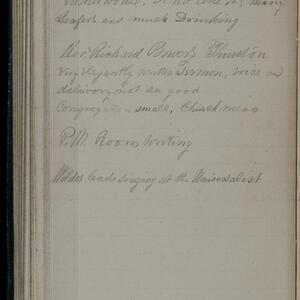 do not like it, many
Loafers and much Drinking
Rev. Richard Bowers Thurston
Very elegantly written Sermon, voice and
delivery not so good
Congregation small, Church mean
P.M. Room writing
Wildes leads singing at the Universalist